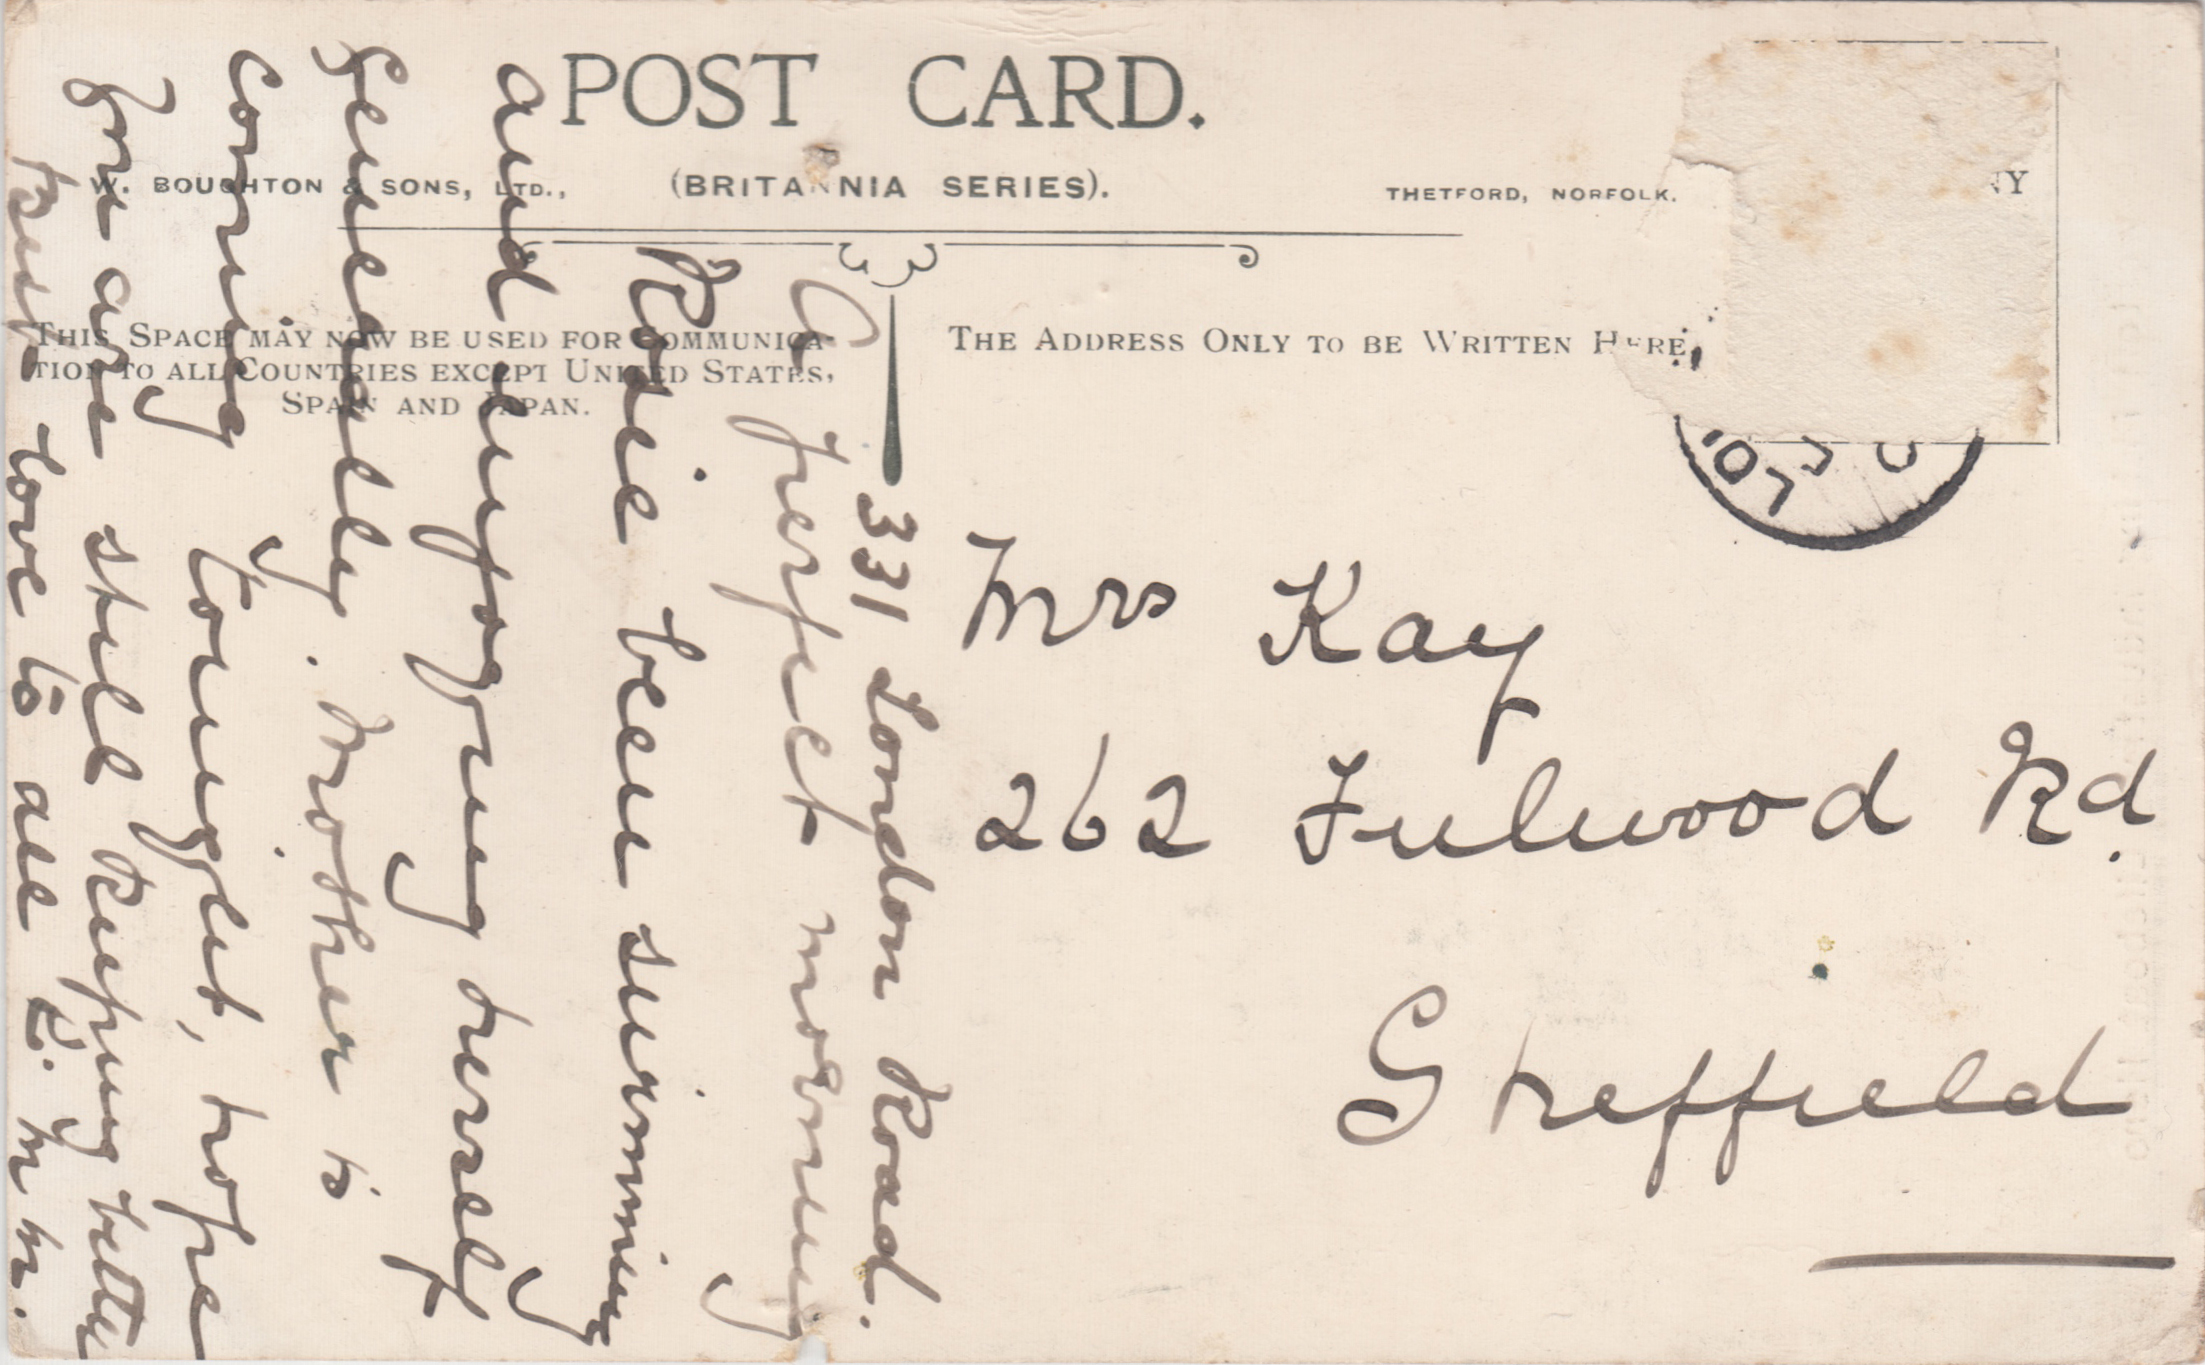 POST CARD.
W. BOUGHTON & SONS, LTD.,
(BRITANNIA SERIES).
THETFORD, NORFOLK.
THIS SPACE MAY NOW BE USED FOR COMMUNICA-
TION TO ALL COUNTRIES EXCEPT UNITED STATES,
SPAIN AND JAPAN.
THE ADDRESS ONLY TO BE WRITTEN HERE
NY
07
331 London Road.
A perfect morning
Rosie been swimming
and enjoying herself
generally. Mother is
coming tonight, hope
you are still keeping better
best love to all E. M. M.
Mrs Kay
262 Fulwood Rd.
Sheffield